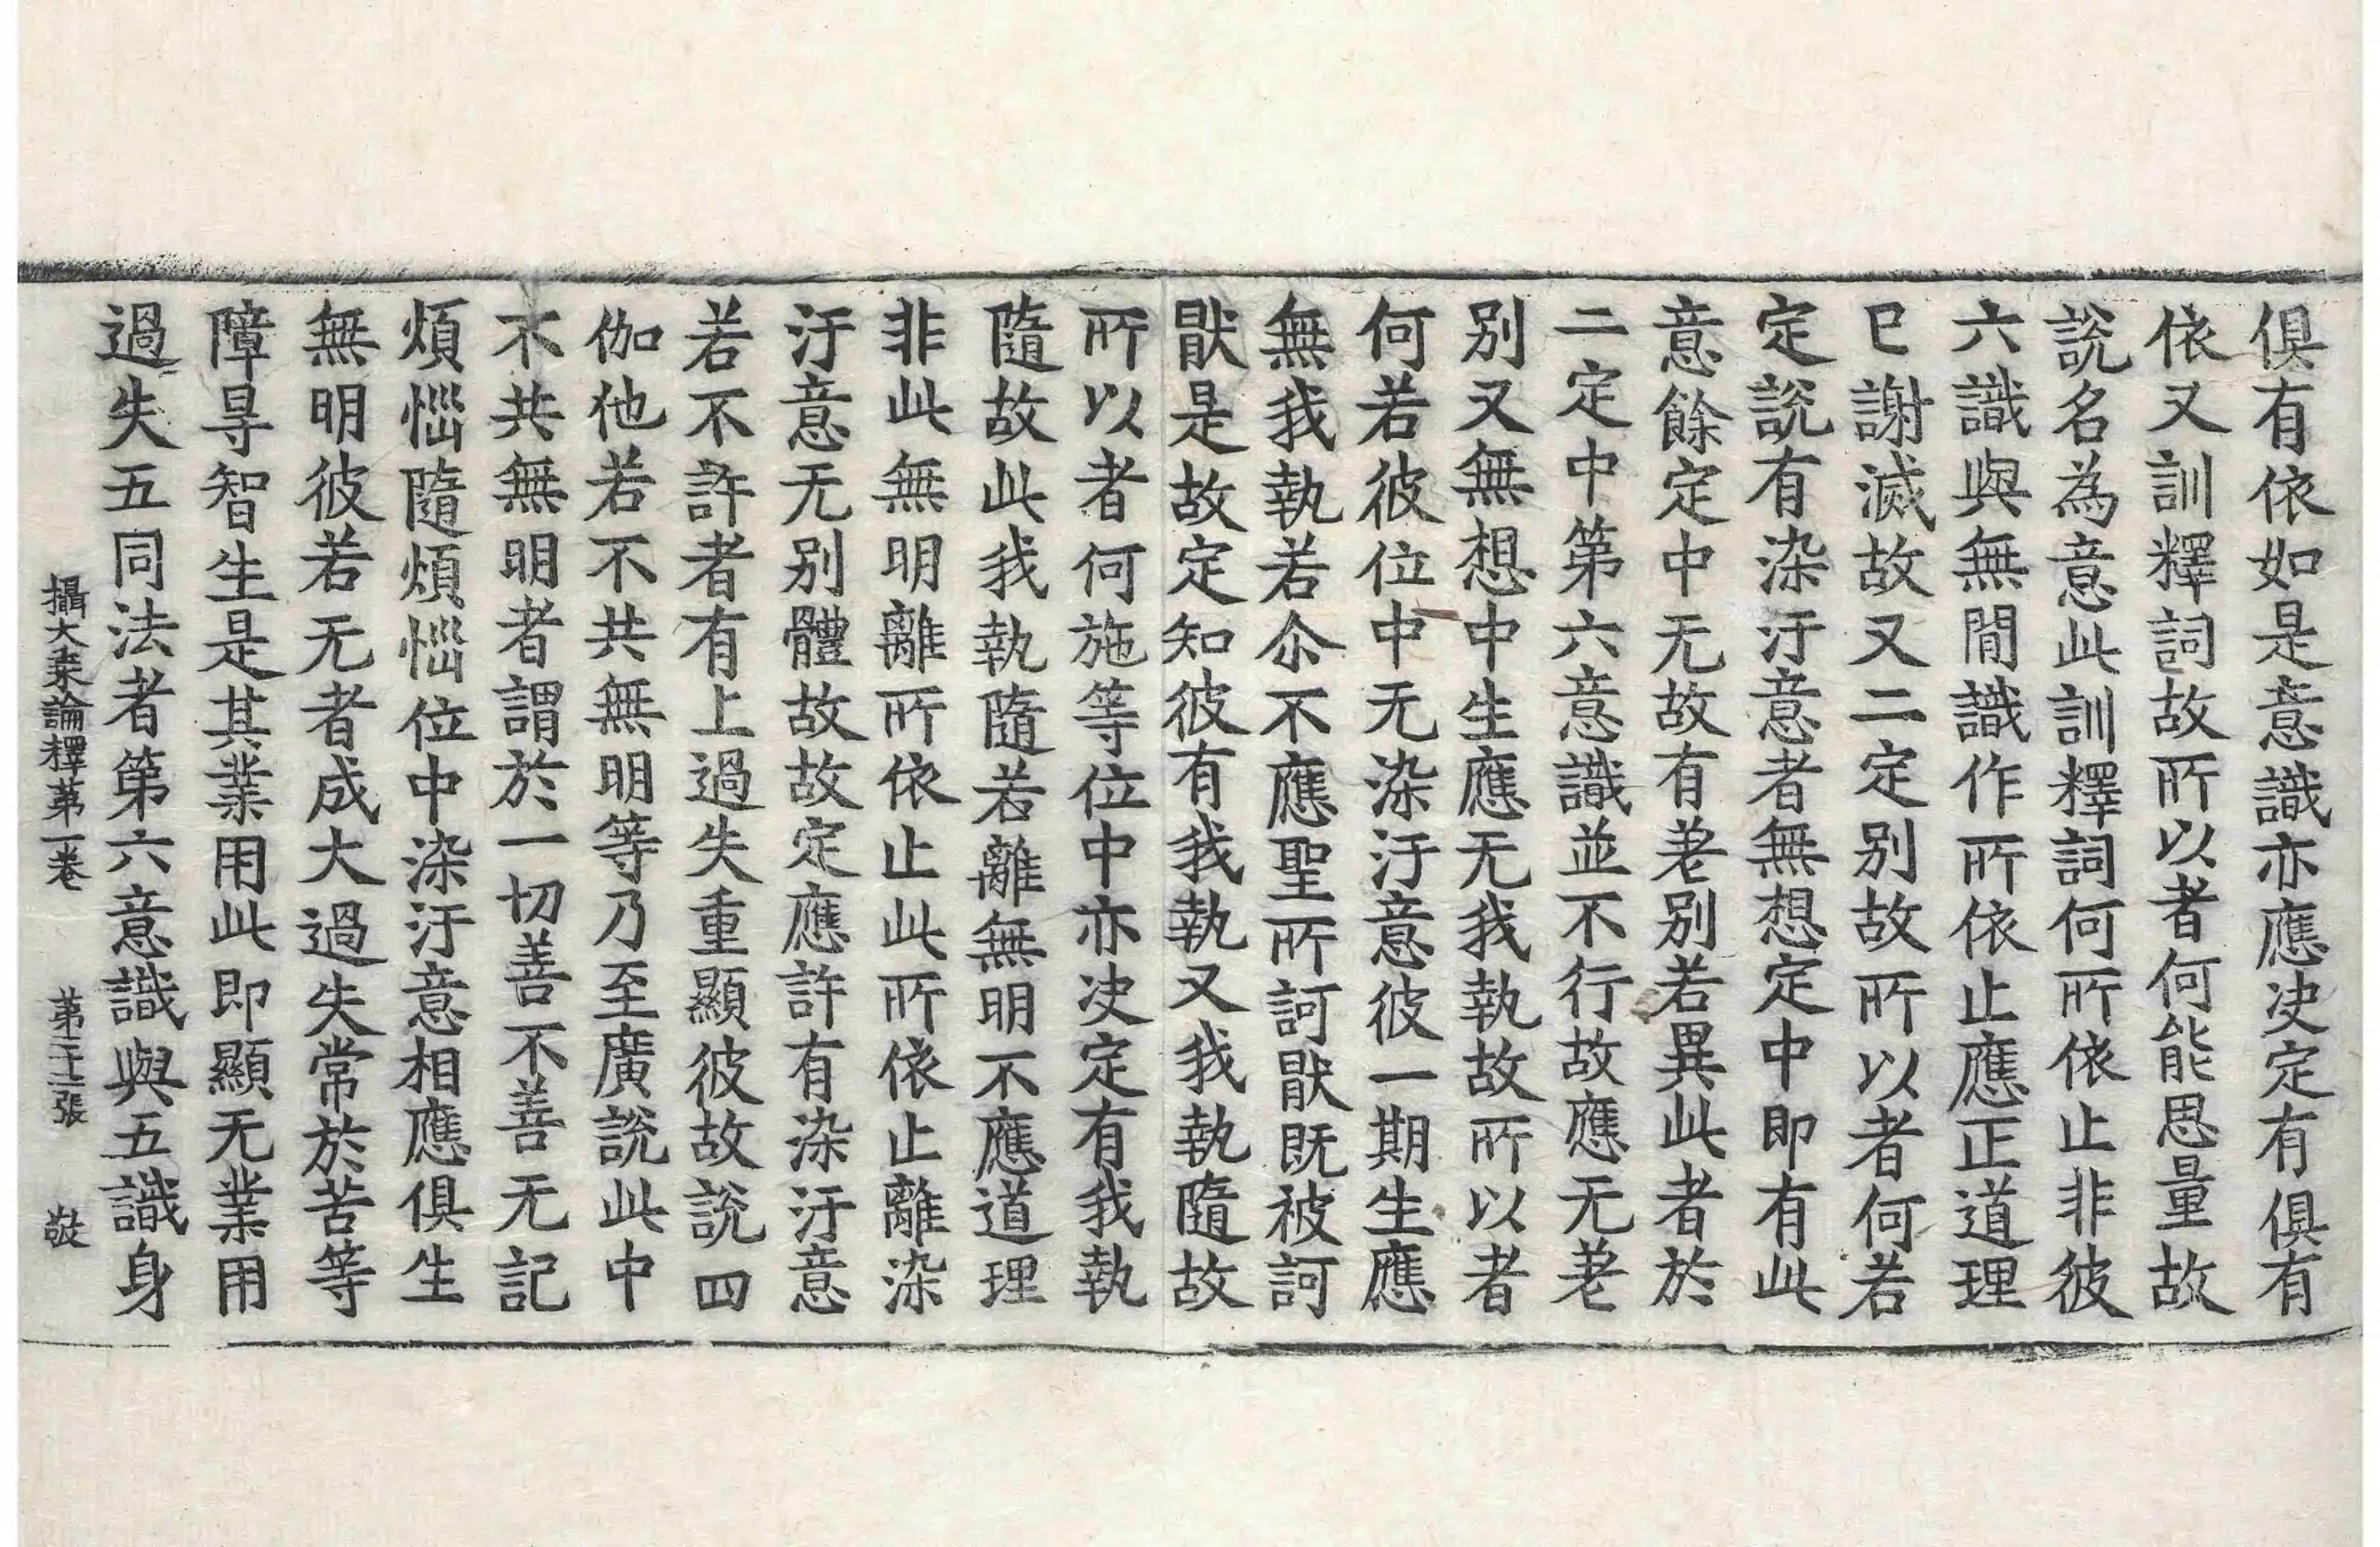 俱有依如是意識亦應决定有俱有
依又訓釋詞故所以者何能思量故
說名為意此訓釋詞何所依止非彼
六識與無閒識作所依止應正道理
已謝滅故又二定别故所以者何若
定說有染汙意者無想定中即有此
意餘定中无故有差别若異此者於
二定中第六意識並不行故應无差
别又無想中生應无我執故所以者
何若彼位中无染汙意彼一期生應
無我執若尒不應聖所訶猒既被訶
猒是故定知彼有我執又我執隨故
所以者何施等位中亦决定有我執
隨故此我執隨若離無明不應道理
非此無明離所依止此所依止離染
汙意无别體故故定應許有染汙意
若不許者有上過失重顯彼故說四
伽他若不共無明等乃至廣說此中
不共無明者謂於一切善不善无記
煩惱隨煩惱位中染汙意相應俱生
無明彼若无者成大過失常於苦等
障㝵智生是其業用此即顯无業用
過失五同法者第六意識與五識身
攝大乗論釋苐一卷 苐二十二張 㪅